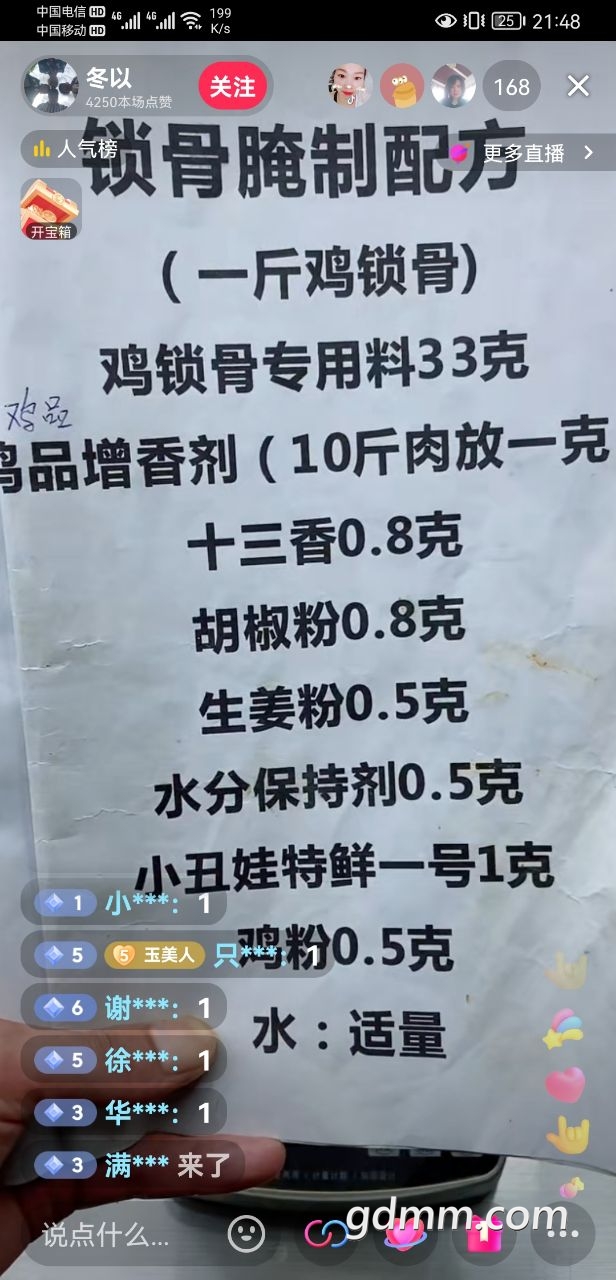 中国电信 HD 4G 4G 199 K/s 25 21:48
中国移动 HD
冬以
4250本场点赞
关注
168
人气榜
更多直播
开宝箱
锁骨腌制配方
(一斤鸡锁骨)
鸡锁骨专用料33克
鸡品
鸡品增香剂(10斤肉放一克
十三香0.8克
胡椒粉0.8克
生姜粉0.5克
水分保持剂0.5克
小丑娃特鲜一号1克
鸡粉0.5克
水:适量
1 小***: 1
5 5 玉美人 只***: 1
6 谢***: 1
5 徐***: 1
3 华***: 1
3 满*** 来了
说点什么...
gdmm.com